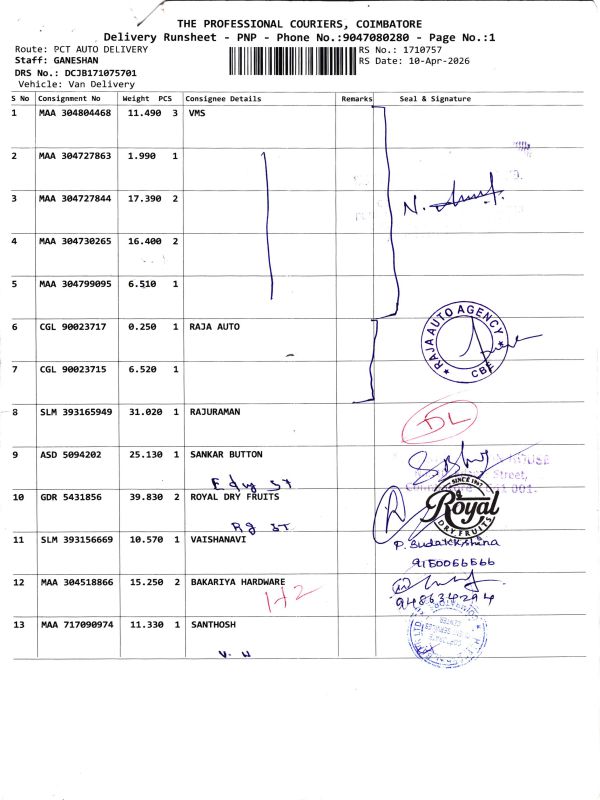 THE PROFESSIONAL COURIERS, COIMBATORE
Delivery Runsheet - PNP - Phone No.:9047080280 - Page No.:1
Route: PCT AUTO DELIVERY
RS No.: 1710757
Staff: GANESHAN
RS Date: 10-Apr-2026
DRS No.: DCJB171075701
Vehicle: Van Delivery
S No Consignment No Weight PCS Consignee Details Remarks Seal & Signature
1 MAA 304804468 11.490 3 VMS
2 MAA 304727863 1.990 1
3 MAA 304727844 17.390 2
N.
4 MAA 304730265 16.400 2
5 MAA 304799095 6.510 1
6 CGL 90023717 0.250 1 RAJA AUTO
RAJA AUTO AGENCY
CBE
7 CGL 90023715 6.520 1
8 SLM 393165949 31.020 1 RAJURAMAN
DL
9 ASD 5094202 25.130 1 SANKAR BUTTON
Street,
001.
10 GDR 5431856 39.830 2 ROYAL DRY FRUITS
SINCE 1967
Royal
DRY FRUITS
Rg ST
11 SLM 393156669 10.570 1 VAISHANAVI
P. Sudatkkshina
9150066566
12 MAA 304518866 15.250 2 BAKARIYA HARDWARE
1+2
9486634294
13 MAA 717090974 11.330 1 SANTHOSH
V. H